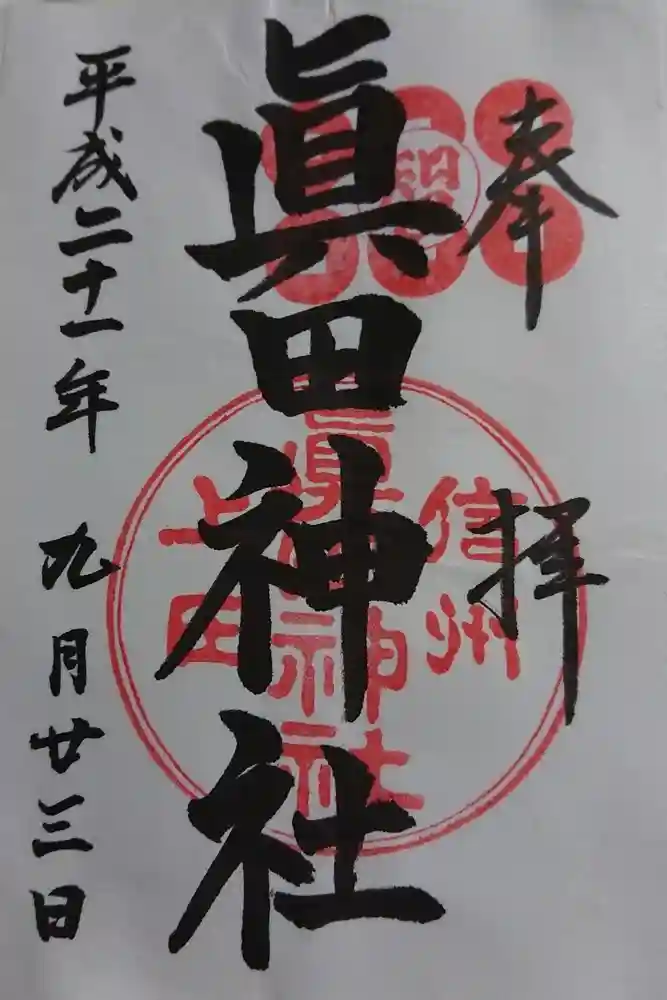 奉拝
眞田神社
平成二十一年九月廿三日
信州
眞田神社
上田
智